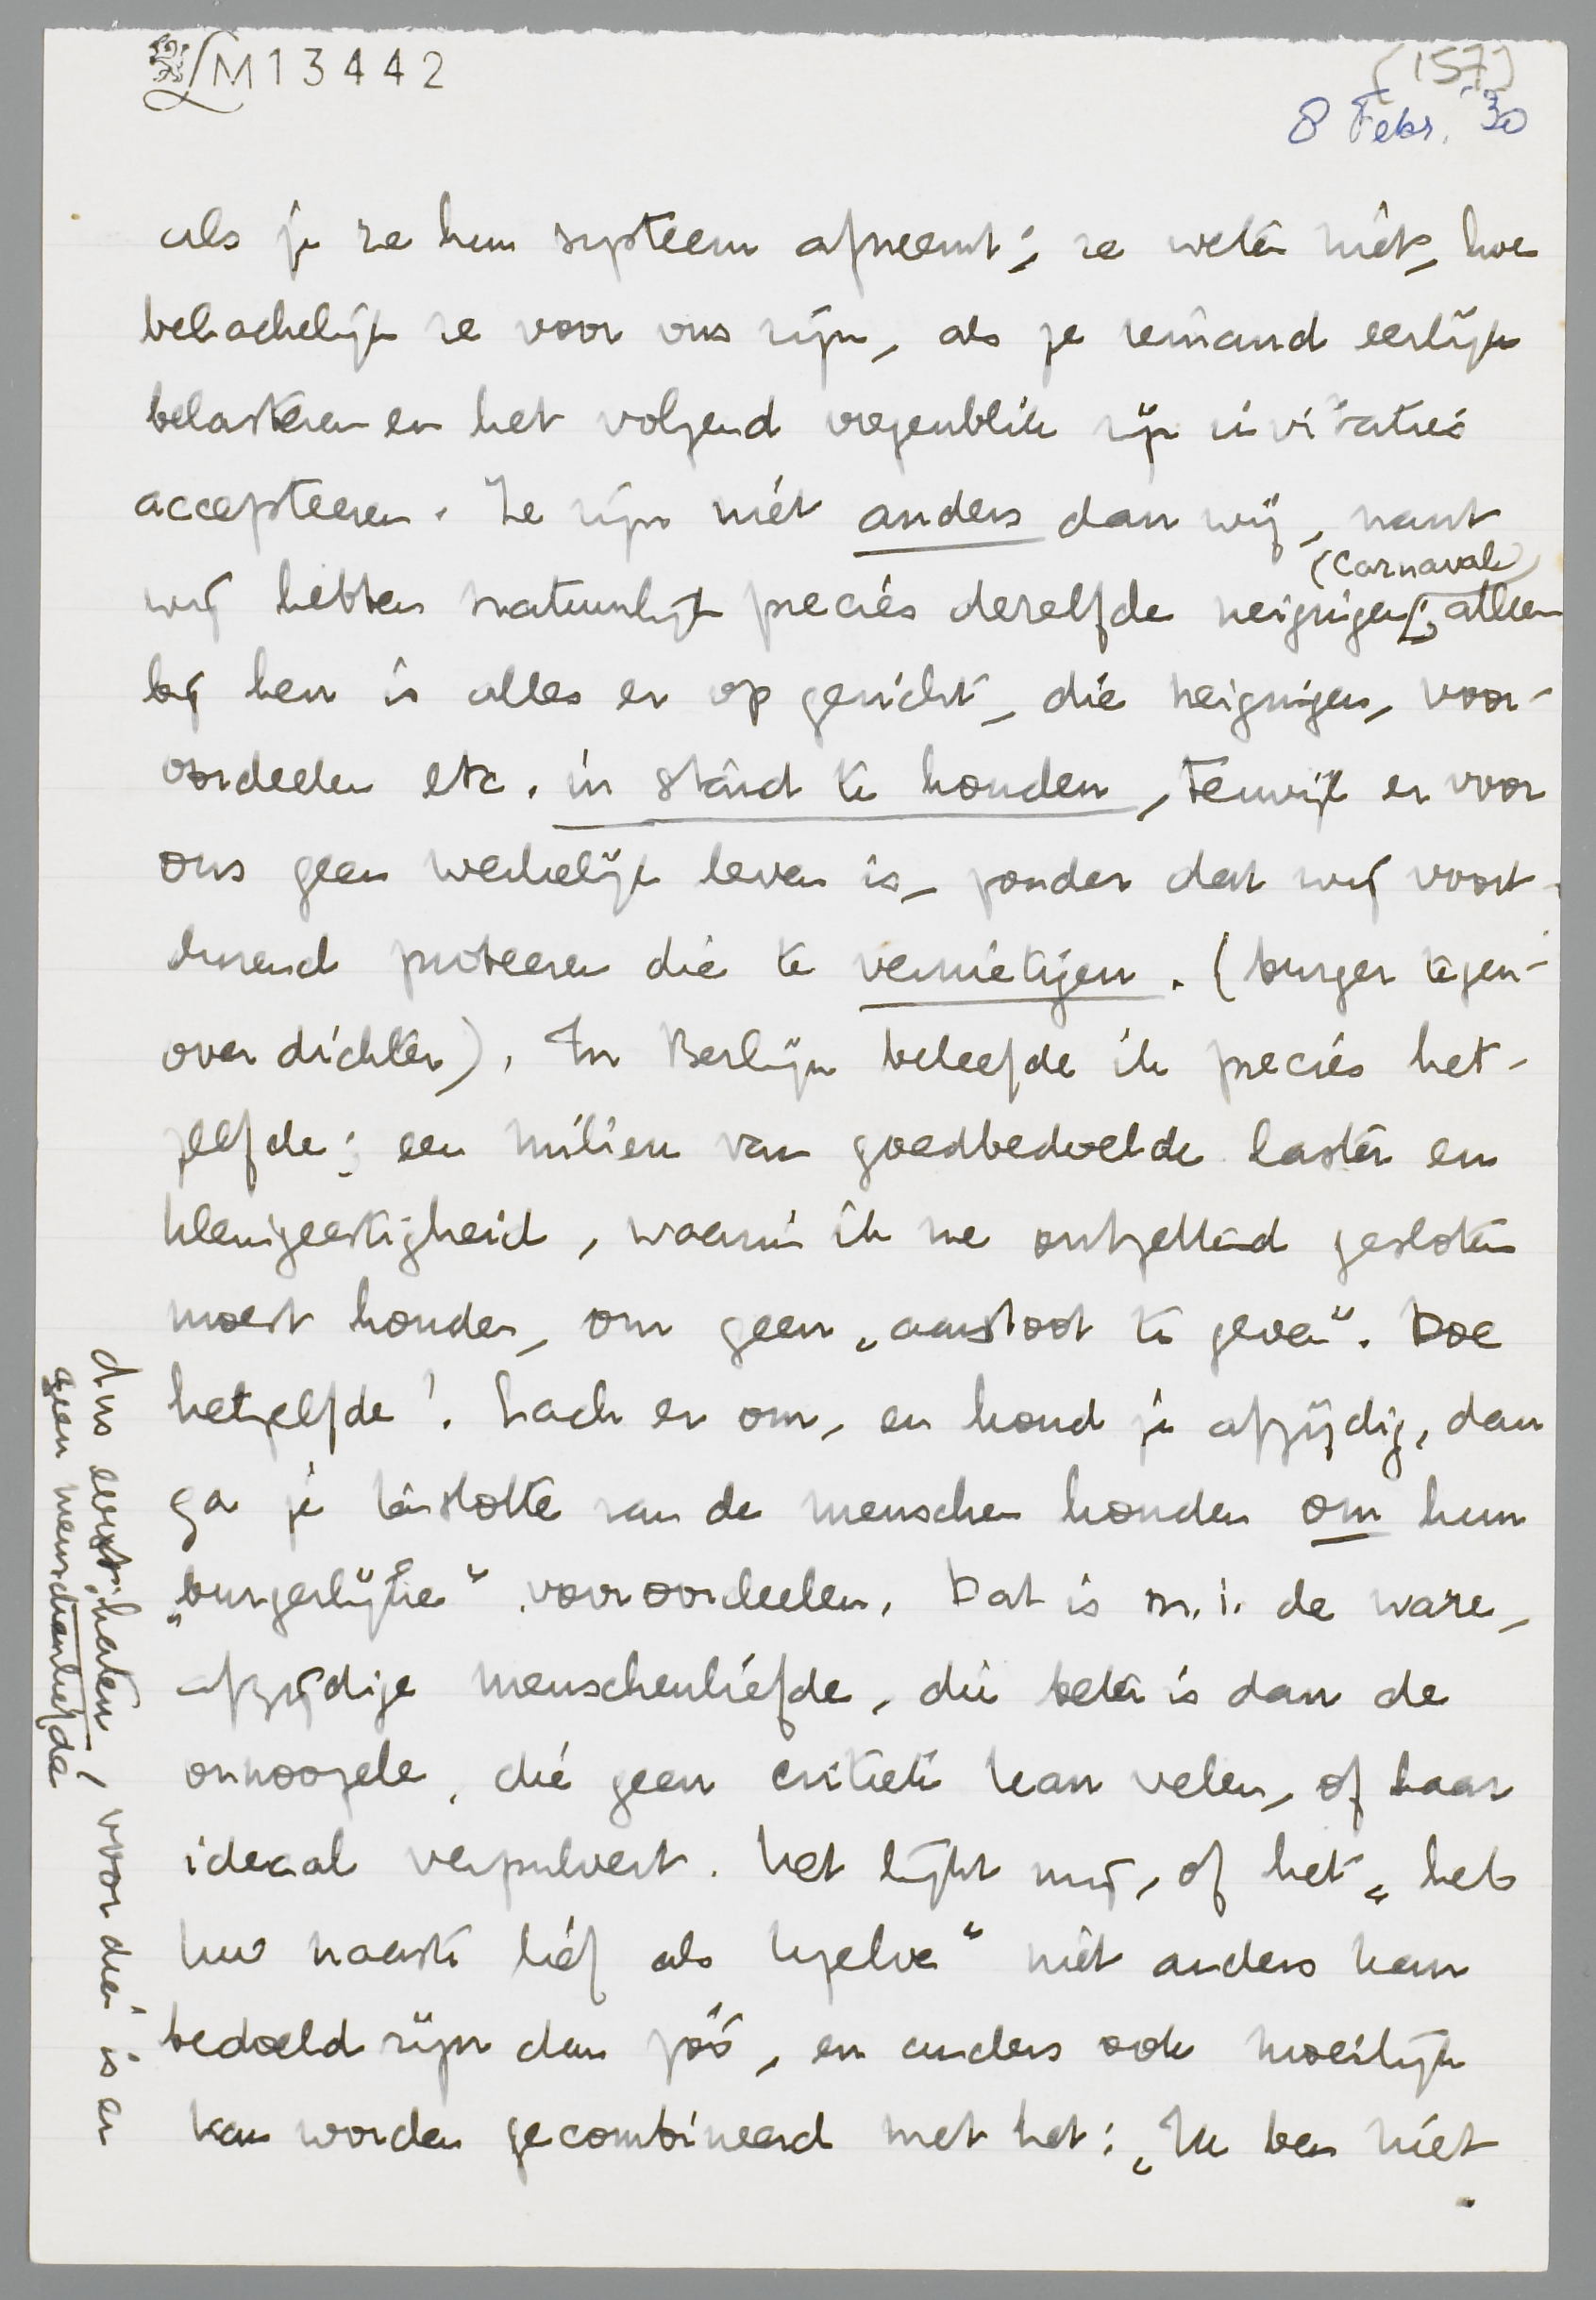 LM13442
[157]
8 Febr. '30
als je ze hun systeem afneemt; ze weten niet, hoe
belachelijk ze voor ons zijn, als ze iemand eerlijk
belasteren en het volgend oogenblik zijn invitaties
accepteeren. Ze zijn niet anders dan wij, want
(Carnaval)
wij hebben natuurlijk precies dezelfde neigingen; alleen
bij hen is alles er op gericht, die neigingen, voor-
oordeelen etc. in stand te houden, terwijl er voor
ons geen werkelijk leven is, zonder dat wij voort-
durend probeeren die te vernietigen. (burger tegen-
over dichter). In Berlijn beleefde ik precies het-
zelfde; een milieu van goedbedoelde laster en
kleingeestigheid, waarin ik me ontzettend gesloten
moest houden, om geen „aanstoot te geven". Doe
hetzelfde! Lach er om, en houd je afzijdig, dan
ga je tenslotte van de menschen houden om hun
„burgerlijke" vooroordeelen. Dat is m.i. de ware,
afzijdige menschenliefde, die beter is dan de
onnoozele, die geen critiek kan velen, of haar
ideaal verpulvert. Het lijkt mij, of het „heb
uw naaste lief als uzelve" niet anders kan
bedoeld zijn dan zóó, en anders ook moeilijk
kan worden gecombineerd met het: „Ik ben niet
dus eerst: haten, voor die is er
geen menschenliefde